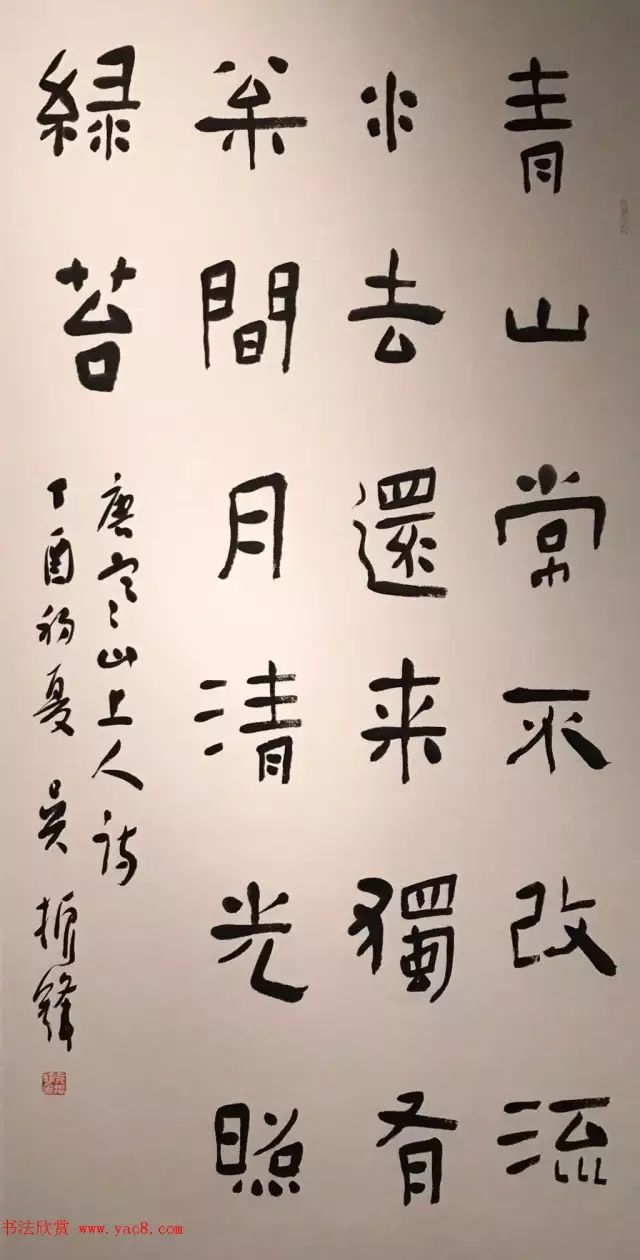 青山常不改流
水去還来獨有
松間月清光照
綠苔
唐寒山上人詩
丁酉初夏 吳振鋒
书法欣赏 www.yac8.com